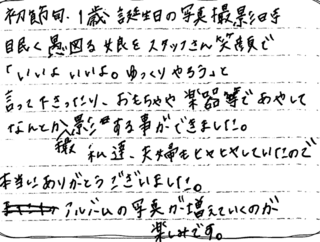 初節句、1歳誕生日の写真撮影日時
眠く愚図る娘をスタッフさん笑顔で
「いいよ いいよ。ゆっくりやろう」と
言ってくださったり、おもちゃや楽器等であやして
なんとか撮影する事ができました。
私達、夫婦もヒヤヒヤしていたので
本当にありがとうございました。
アルバムの写真が増えていくのが
楽しみです。